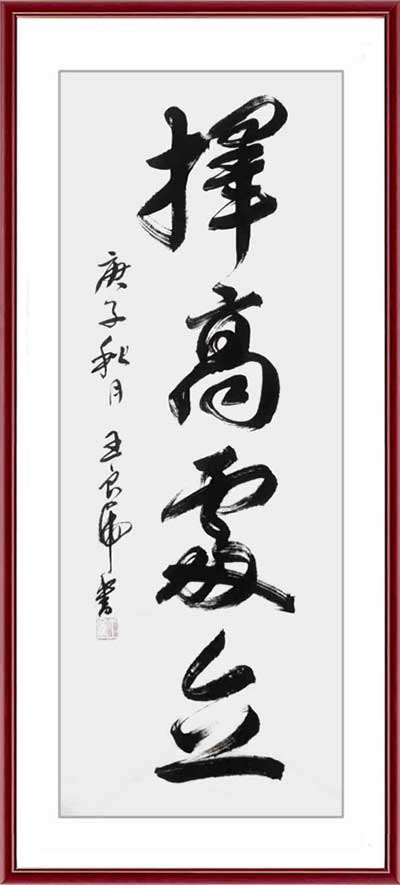 擇高處立
庚子秋月 王良虎書